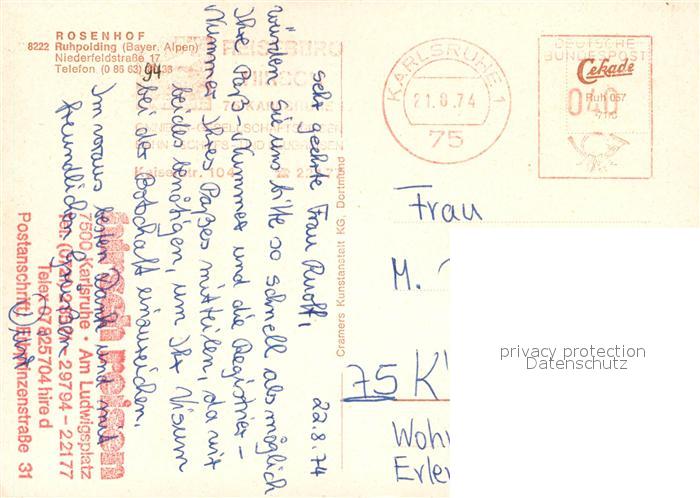 ROSENHOF
8222 Ruhpolding (Bayer. Alpen)
Niederfeldstraße 17
Telefon (0 86 63)
REISEBÜRO
HIRSCH
Kaiserstr. 104
KARLSRUHE 1
21.8.74
75
DEUTSCHE
BUNDESPOST
Cekade
040
Ruh 057
Cramers Kunstanstalt KG, Dortmund
22.8.74
Sehr geehrte Frau Ruoff,
würden Sie uns bitte so schnell als möglich
Ihre Paß-Nummer und die Registrier-
Nummer Ihres Paßes mitteilen, da wir
beides benötigen, um Ihr Visum
bei der Botschaft einzureichen.
Im voraus besten Dank und mit
freundlichen Grüßen
hirsch reisen
7500 Karlsruhe • Am Ludwigsplatz
29794 – 22177
Telex 07825704 hire d
Postanschrift: Erbprinzenstraße 31
Frau
M.
75 K
Woh
Erle
privacy protection
Datenschutz